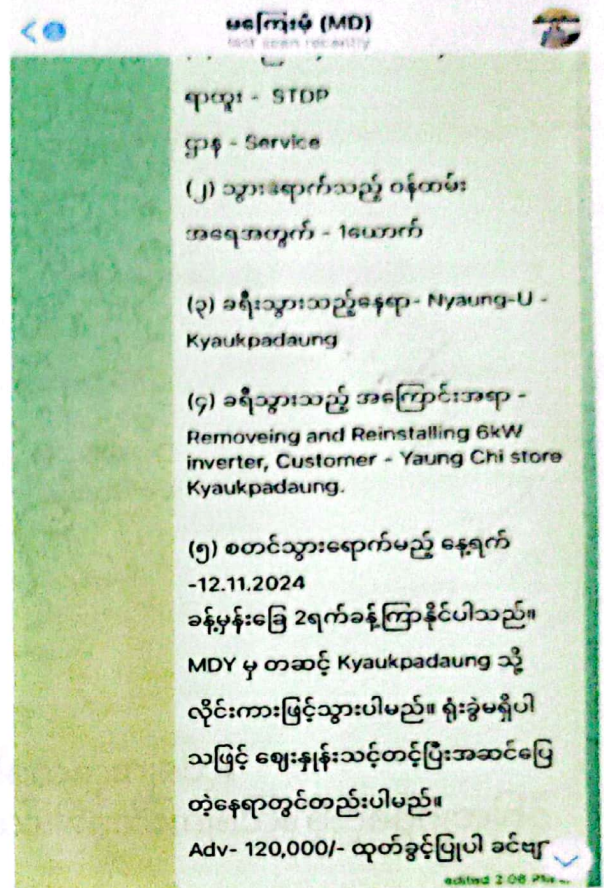 မကြေးမုံ (MD)
last seen recently
ရာထူး - STOP
ဌာန - Service
(၂) သွားရောက်သည့် ဝန်ထမ်း
အရေအတွက် - 1ယောက်
(၃) ခရီးသွားသည့်နေရာ- Nyaung-U -
Kyaukpadaung
(၄) ခရီသွားသည့် အကြောင်းအရာ -
Removeing and Reinstalling 6kW
inverter, Customer - Yaung Chi store
Kyaukpadaung.
(၅) စတင်သွားရောက်မည့် နေ့ရက်
-12.11.2024
ခန့်မှန်းခြေ 2ရက်ခန့်ကြာနိုင်ပါသည်။
MDY မှ တဆင့် Kyaukpadaung သို့
လိုင်းကားဖြင့်သွားပါမည်။ ရုံးခွဲမရှိပါ
သဖြင့် ဈေးနှုန်းသင့်တင့်ပြီးအဆင်ပြေ
တဲ့နေရာတွင်တည်းပါမည်။
Adv- 120,000/- ထုတ်ခွင့်ပြုပါ ခင်ဗျ
edited 2:08 PM